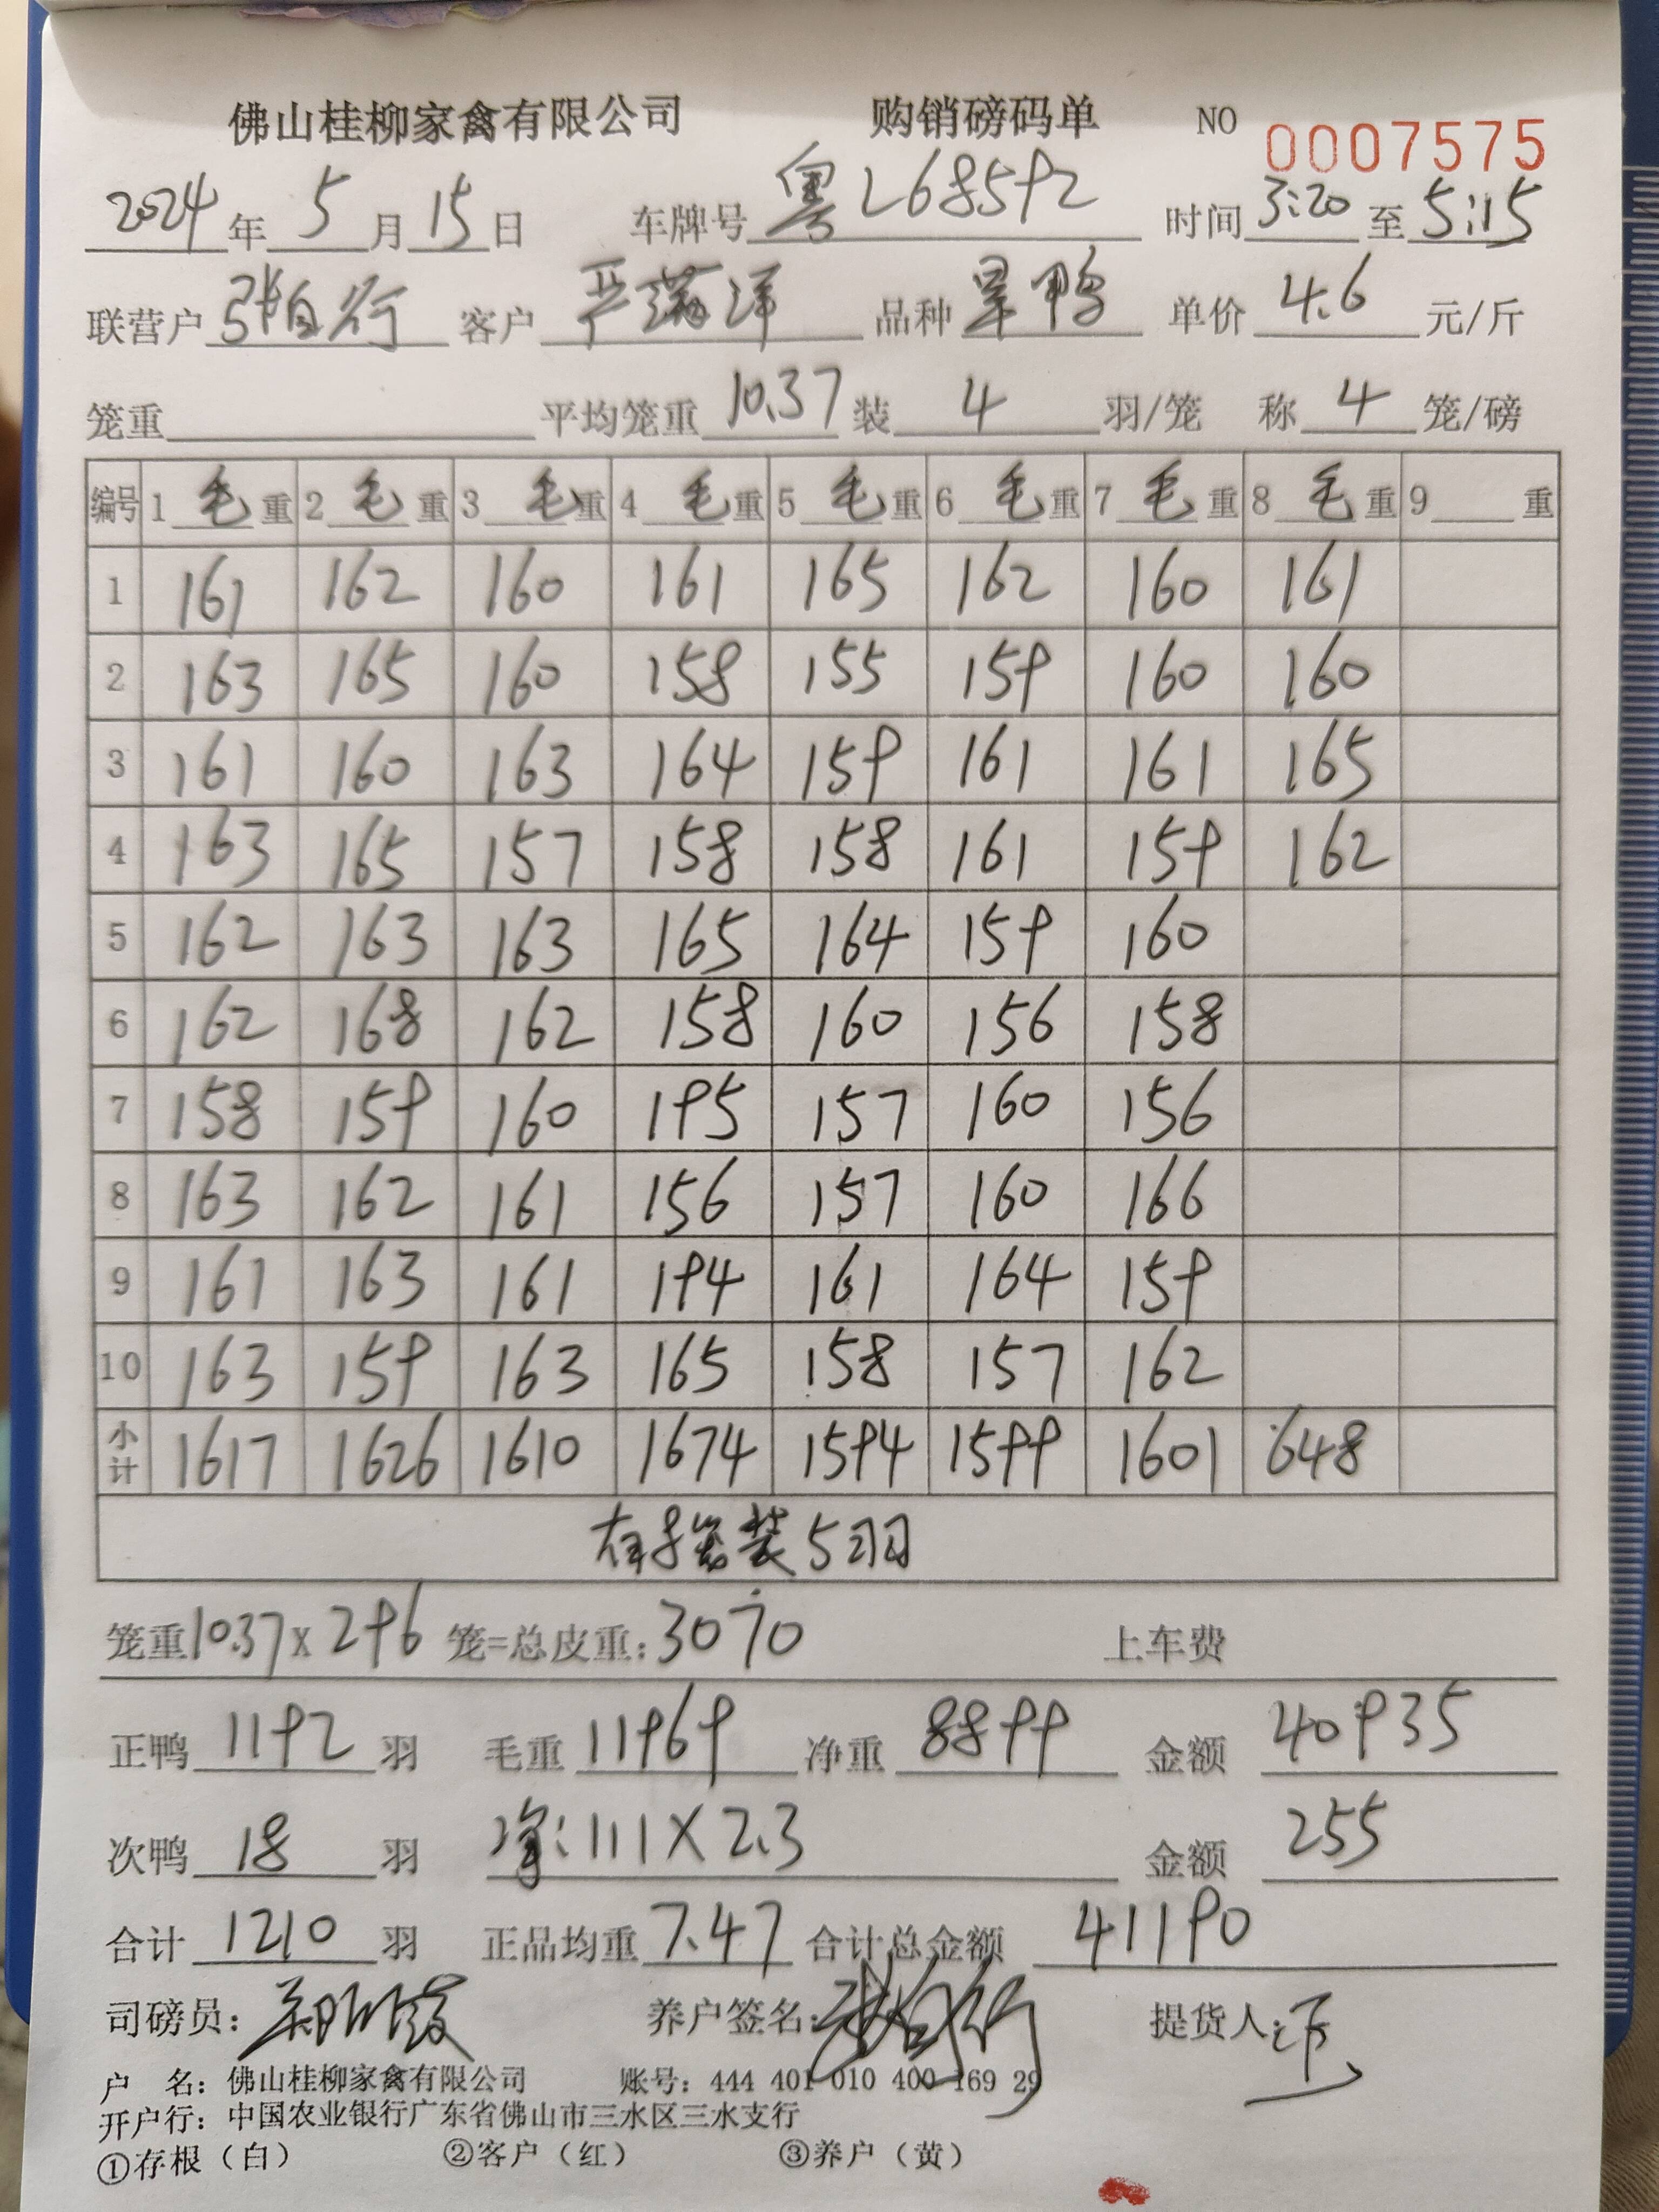 佛山桂柳家禽有限公司 购销磅码单 NO 0007575
2024年5月15日 车牌号 粤L68592 时间3:20至5:15
联营户 张自行 客户 严满洋 品种 旱鸭 单价 4.6 元/斤
笼重 平均笼重 10.37 装 4 羽/笼 称 4 笼/磅
编号 1 毛重 2 毛重 3 毛重 4 毛重 5 毛重 6 毛重 7 毛重 8 毛重 9 重
1 161 162 160 161 165 162 160 161
2 163 165 160 158 155 159 160 160
3 161 160 163 164 159 161 161 165
4 163 165 157 158 158 161 159 162
5 162 163 163 165 164 159 160
6 162 168 162 158 160 156 158
7 158 159 160 195 157 160 156
8 163 162 161 156 157 160 166
9 161 163 161 194 161 164 159
10 163 159 163 165 158 157 162
小计 1617 1626 1610 1674 1594 1599 1601 648
装5羽
笼重10.37x296 笼=总皮重:3070 上车费
正鸭 1192 羽 毛重 11969 净重 8899 金额 40935
次鸭 18 羽 净:111X2.3 金额 255
合计 1210 羽 正品均重 7.47 合计总金额 41190
司磅员: 养户签名: 张自行 提货人:
户 名: 佛山桂柳家禽有限公司 账号: 444 401 010 400 169 29
开户行: 中国农业银行广东省佛山市三水区三水支行
①存根(白) ②客户(红) ③养户(黄)